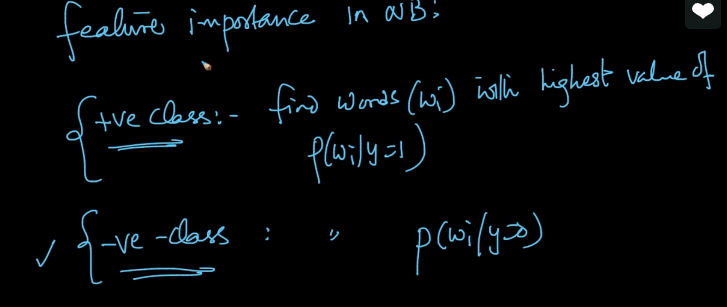 feature importance in NB:
+ve class:- find words (wi) with highest value of
P(wi/y=1)
✓ -ve -class : " P(wi/y=0)